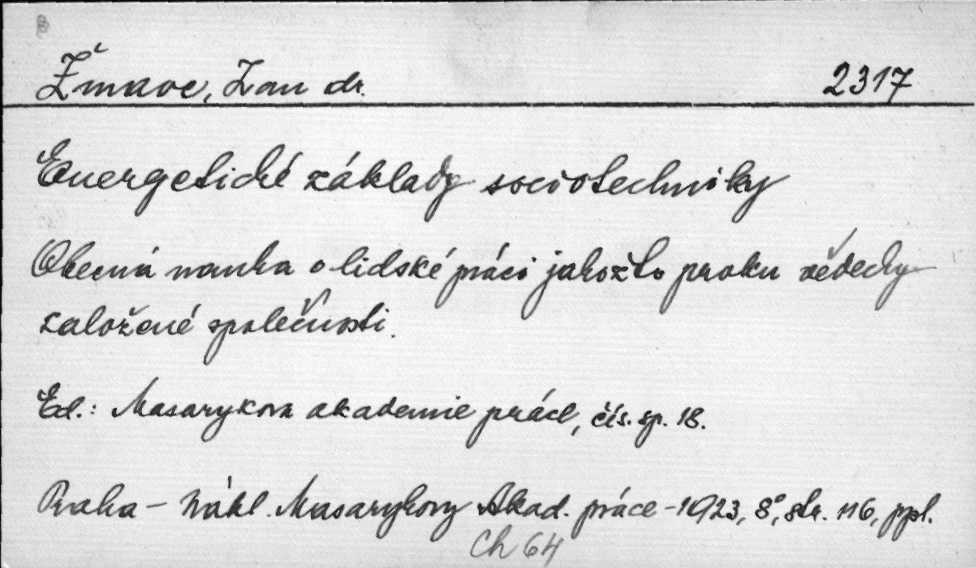 Žmavc, Jan dr. 2317
Energetické základy sociotechniky
Obecná nauka o lidské práci jakožto prvku vědecky
založené společnosti.
Ed.: Masarykova akademie práce, čís. sp. 18.
Praha - Nákl. Masarykovy Akad. práce - 1923, 8°, str. 116, ppl.
Ch 64